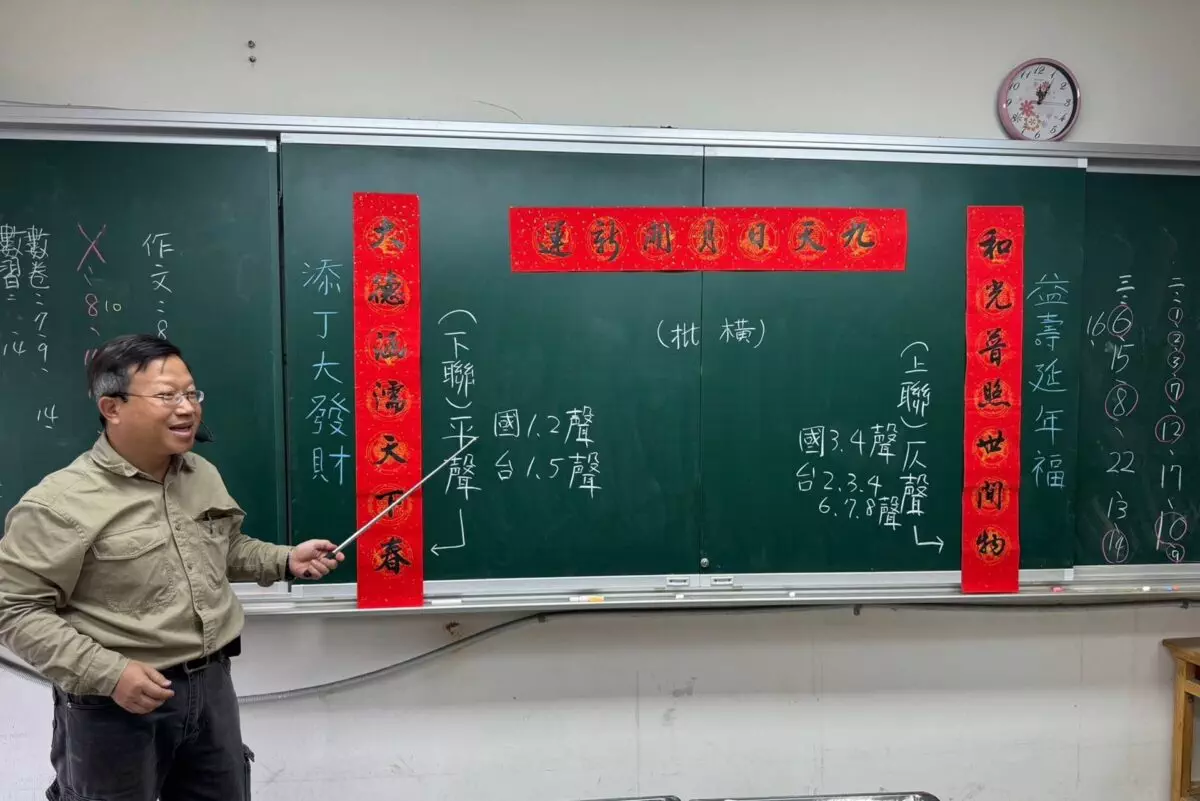 九天日月開新運
(橫批)
和光普照世間物
益壽延年福
(上聯)仄聲
國3.4聲
台2.3.4
6.7.8聲
大德涵濡天下春
添丁大發財
(下聯)平聲
國1.2聲
台1.5聲
二、①、②、③、⑦、⑫、17、⑩、⑨
三、⑥、15、⑧、22、13、⑭
16、
作文:8
8、
10
數卷:7、9、
14
數習:
14